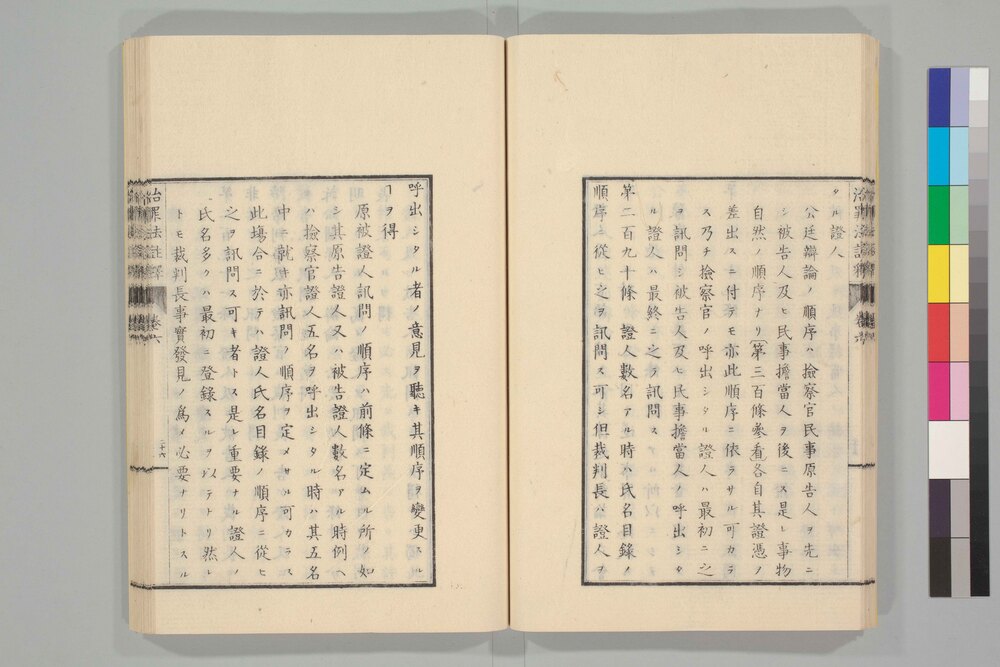 タル證人
公廷辯論ノ順序ハ撿察官民事原告人ヲ先ニ
シ被告人及ヒ民事擔當人ヲ後ニス是レ事物
自然ノ順序ナリ(第三百條參看各自其證憑ノ
差出スニ付テモ亦此順序ニ依ラサル可カラ
ス乃チ撿察官ノ呼出シタル證人ハ最初ニ之
ヲ訊問シ被告人及ヒ民事擔當人ノ呼出シタ
ル證人ハ最終ニ之ヲ訊問ス
第二百九十條 證人數名アル時ハ氏名目錄ノ
順序ニ從ヒ之ヲ訊問ス可シ但裁判長ハ證人ヲ
呼出シタル者ノ意見ヲ聽キ其順序ヲ變更スル
ヿヲ得
原被證人訊問ノ順序ハ前條ニ定ムル所ノ如
シ其原告證人又ハ被告證人數名アル時例ヘ
ハ撿察官證人五名ヲ呼出シタル時ハ其五名
中ニ就キ亦訊問ノ順序ヲ定メサル可カラス
此塲合ニ於テハ證人氏名目錄ノ順序ニ從ヒ
之ヲ訊問ス可キ者トス是レ重要ナル證人ノ
氏名多クハ最初ニ登錄スルヲ以テナリ然レ
トモ裁判長事實發見ノ爲メ必要ナリトスル
治罪法註釋 卷六 二十六